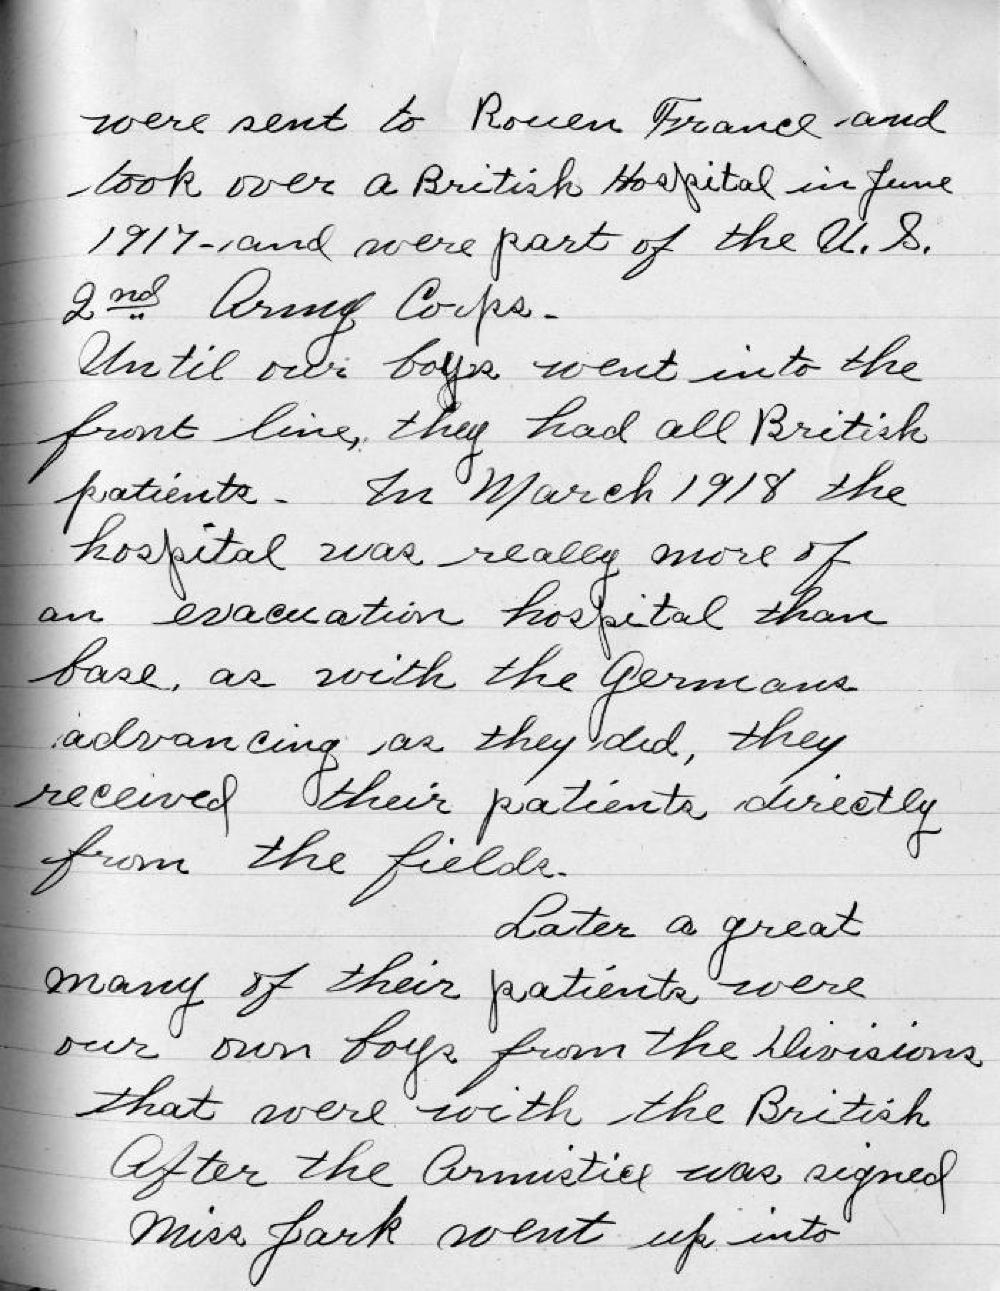 were sent to Rouen France and
took over a British Hospital in June
1917 - and were part of the U.S.
2nd Army Corps. -
Until our boys went into the
front line, they had all British
patients - In March 1918 the
hospital was really more of
an evacuation hospital than
base, as with the Germans
advancing as they did, they
received their patients directly
from the fields.
Later a great
many of their patients were
our own boys from the Divisions
that were with the British
After the Armistice was signed
Miss Jark went up into